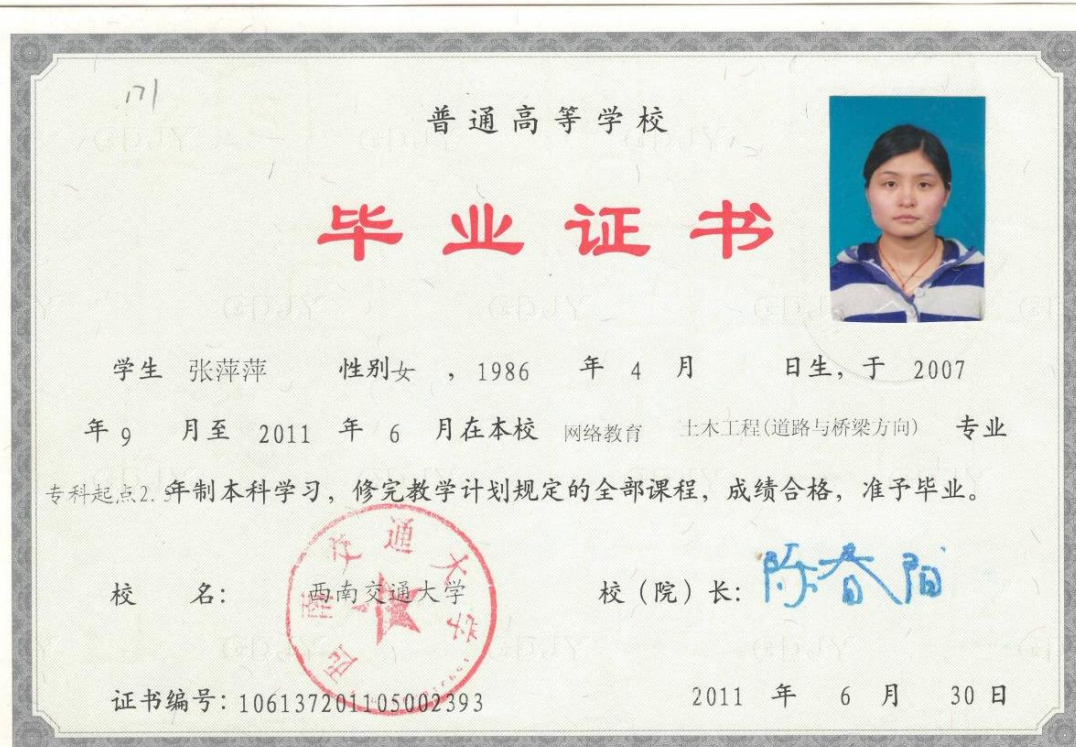 171
普通高等学校
毕业证书
学生 张萍萍 性别女 ，1986 年 4 月 日生，于 2007
年 9 月至 2011 年 6 月在本校 网络教育 土木工程(道路与桥梁方向) 专业
专科起点2.5年制本科学习，修完教学计划规定的全部课程，成绩合格，准予毕业。
校 名： 西南交通大学 校（院）长：陈春阳
西南交通大学
证书编号：106137201105002393 2011 年 6 月 30 日